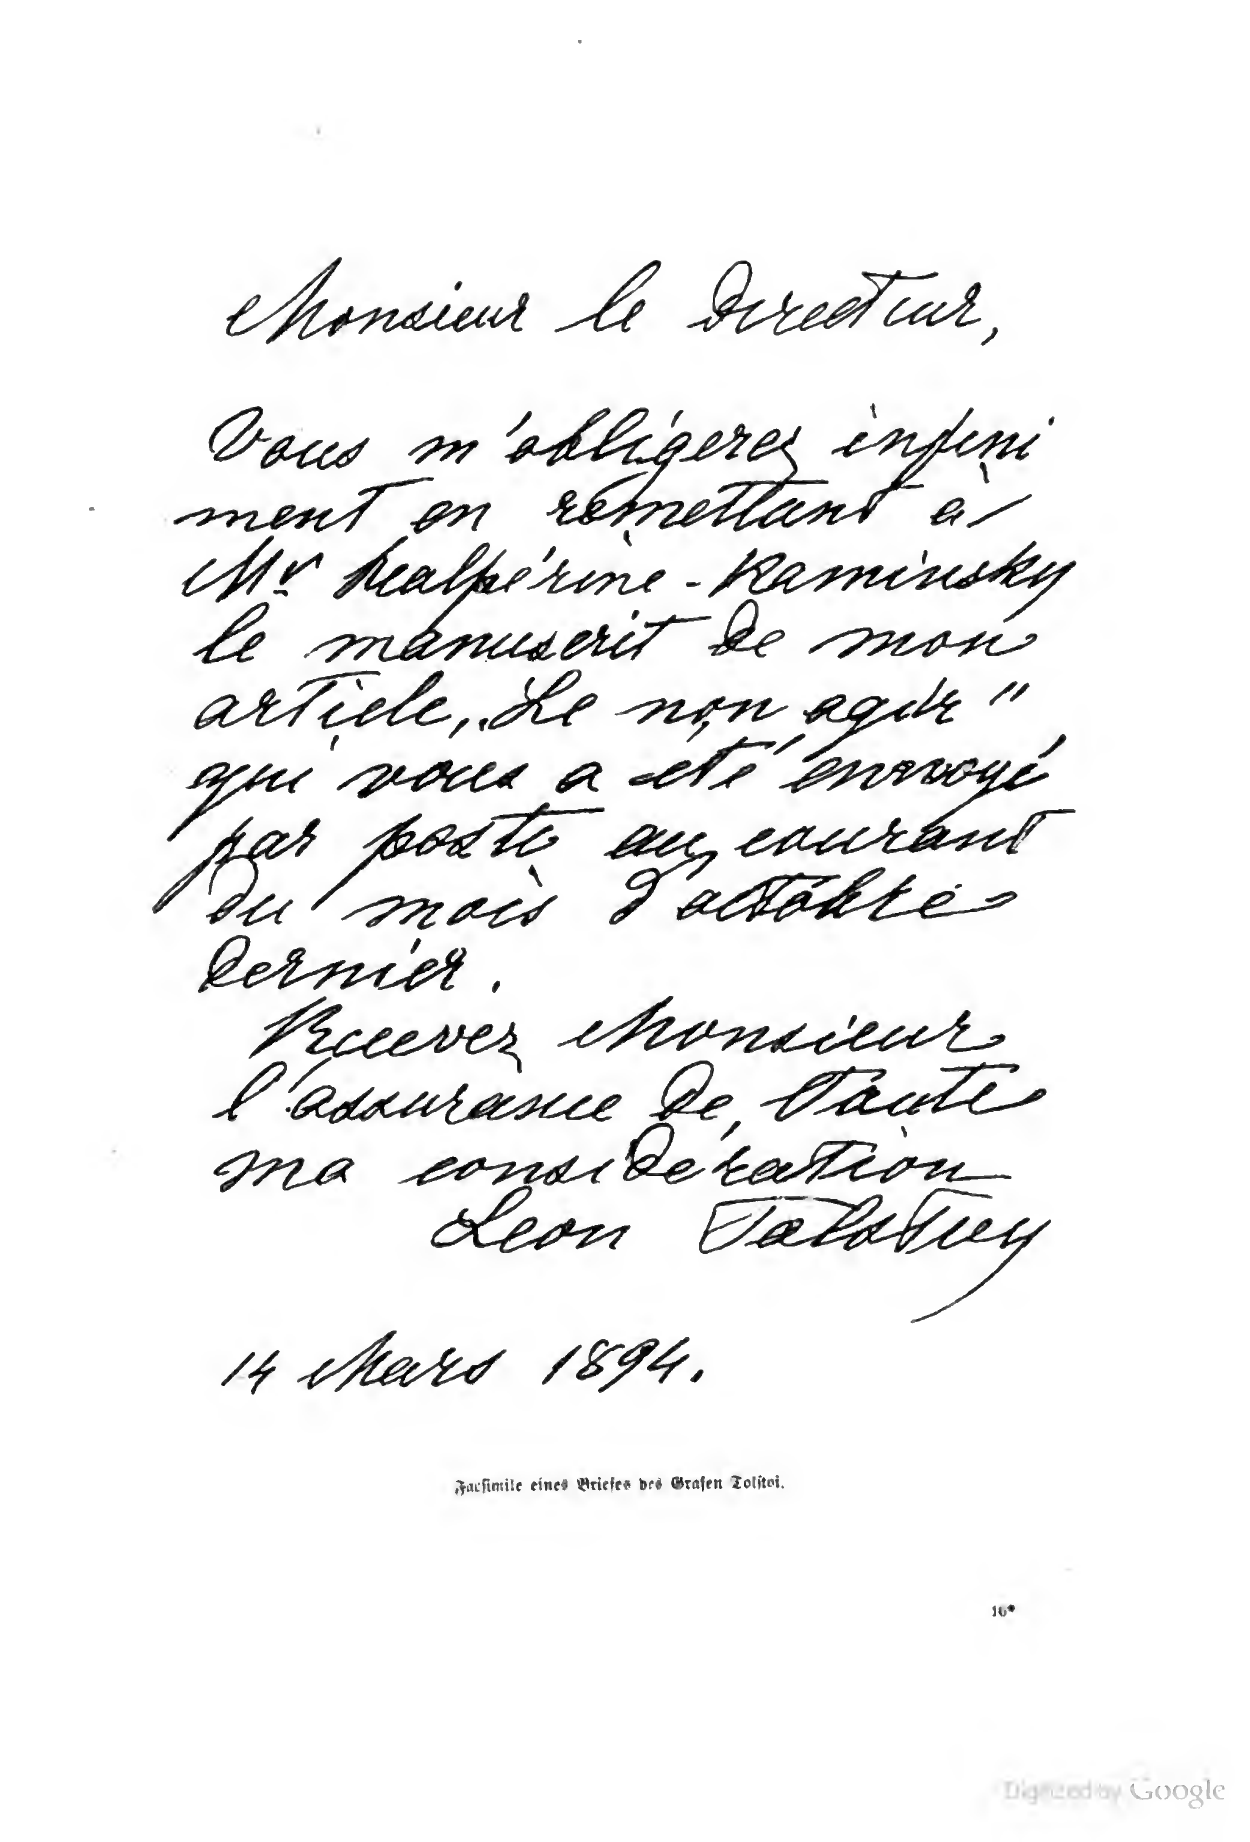 Monsieur le Directeur,
Vous m'obligerez infini
ment en remettant à
Mr Halpérine-Kaminsky
le manuscrit de mon
article, „Le non agir"
qui vous a été envoyé
par poste au courant
du mois d'octobre
dernier.
Recevez Monsieur
l'assurance de toute
ma considération
Leon Tolstoy
14 Mars 1894.
Facsimile eines Briefes des Grafen Tolstoi.
16*
Digitized by Google